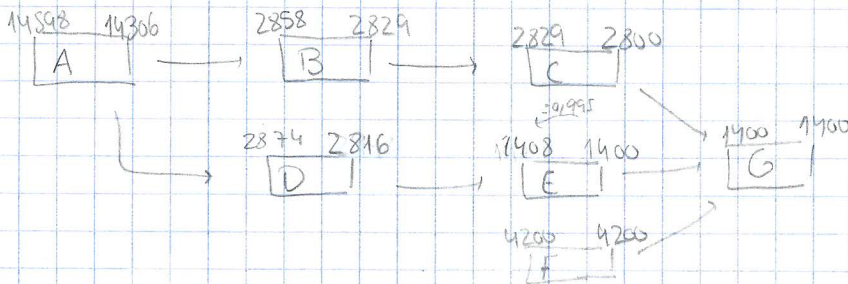 14598 14306
A
2858 2829
B
2829 2800
C
2874 2816
D
:0,995
1408 1400
E
1400 1400
G
4200 4200
F